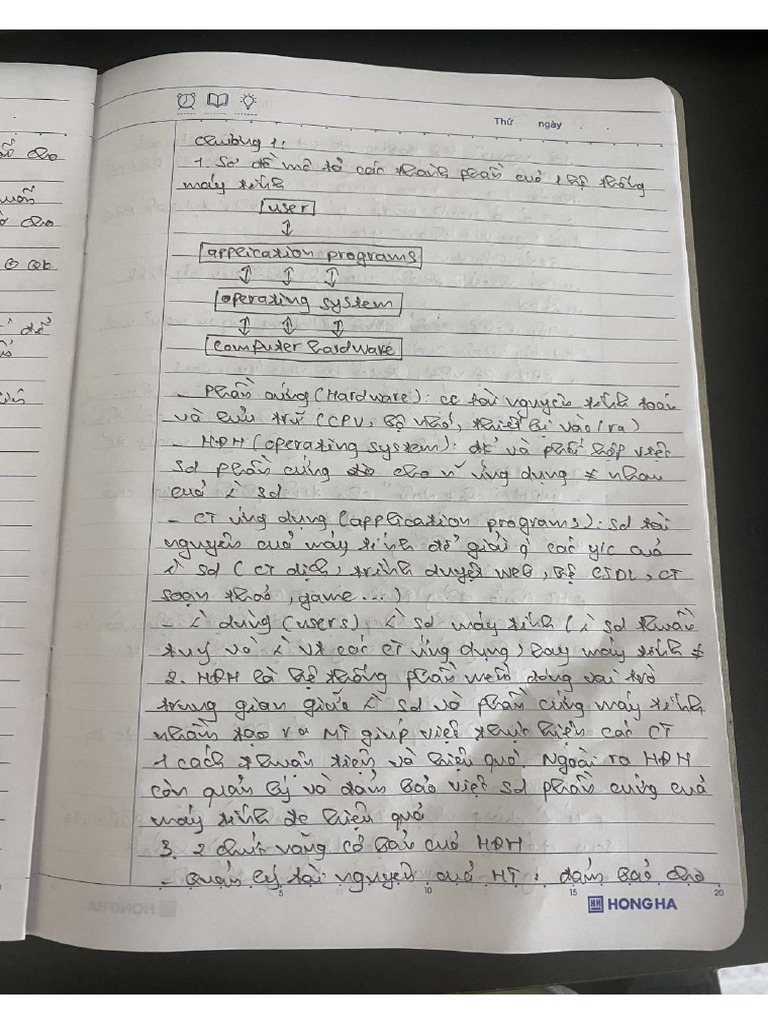 Thứ ngày
Chương 1:
1. Sơ đồ mô tả các thành phần của 1 hệ thống
máy tính
user
application programs
operating system
computer hardware
- Phần cứng (Hardware): cc tài nguyên tính toán
và lưu trữ (CPU, bộ nhớ, thiết bị vào/ra)
- HĐH (operating system): đk và phối hợp việc
sd phần cứng cho n~ ứng dụng ≠ nhau
của sd
- CT ứng dụng (application programs): sd tài
nguyên của máy tính để giải q các y/c của
sd (CT dịch, trình duyệt web, hệ CSDL, CT
soạn thảo, game...)
- dùng (users): sd máy tính ( sd thuần
tuý và vt các CT ứng dụng) hay máy tính ≠
2. HĐH là hệ thống phần mềm đóng vai trò
trung gian giữa sd và phần cứng máy tính
nhằm tạo ra MT giúp việc thực hiện các CT
1 cách thuận tiện và hiệu quả. Ngoài ra HĐH
còn quản lý và đảm bảo việc sd phần cứng của
máy tính đc hiệu quả
3. 2 chức năng cơ bản của HĐH
- Quản lý tài nguyên của MT: đảm bảo cho
5 10 15 20
HH HONG HA